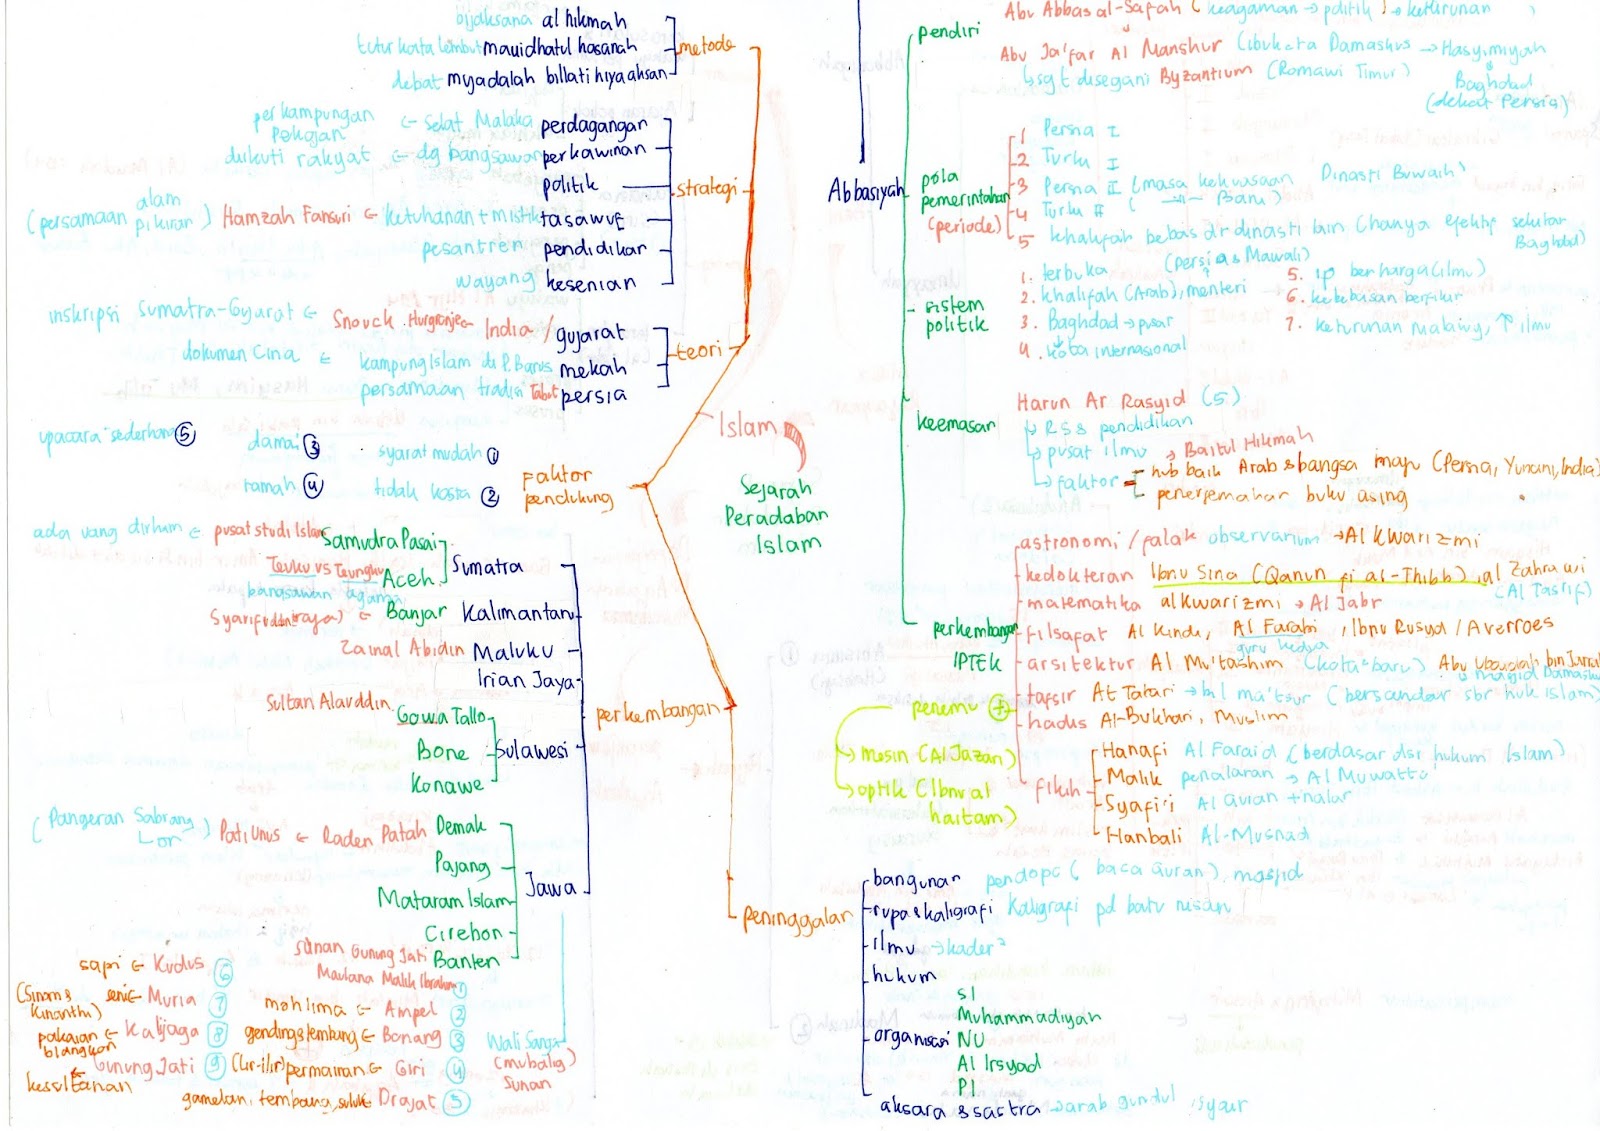 bijaksana al hikmah
tutur kata lembut mauidhatul hasanah
debat mujadalah billati hiya ahsan
metode
perkampungan Pekojan ← Selat Malaka perdagangan
diikuti rakyat ← dg bangsawan perkawinan
politik
strategi
(persamaan alam pikiran) Hamzah Fansuri ← ketuhanan + mistik tasawuf
pesantren pendidikan
wayang kesenian
inskripsi Sumatra-Gujarat ← Snouck Hurgronje ← India / gujarat
dokumen Cina ← kampung Islam di P. Barus mekah
persamaan tradisi Tabot persia
teori
Islam
Sejarah
Peradaban
Islam
upacara sederhana 5
damai 3
syarat mudah 1
ramah 4
tidak kasta 2
faktor
pendukung
ada uang dirham ← pusat studi Islam Samudra Pasai
Teuku vs Teungku Aceh
bangsawan agama
Sumatra
Syarifuddin (raja) ← Banjar Kalimantan
Zainal Abidin Maluku
Irian Jaya
perkembangan
Sultan Alauddin Gowa Tallo
Bone
Konawe
Sulawesi
(Pangeran Sabrang Lor) Pati Unus ← Raden Patah Demak
Pajang
Mataram Islam
Cirebon
Banten
Jawa
Sunan Gunung Jati
Maulana Malik Ibrahim 1
sapi ← Kudus 6
(Sinom & Kinanthi) seni ← Muria 7
moh lima ← Ampel 2
pakaian blangkon ← Kalijaga 8
gending & tembung ← Bonang 3
kesultanan ← Gunung Jati 9
(lir-ilir) permainan ← Giri 4
gamelan, tembang, suluk ← Drajat 5
Wali Sanga
(mubalig)
Sunan
Abbasiyah
pendiri
Abu Abbas al-Safah (keagaman → politik) → keturunan
Abu Ja'far Al Manshur (ibukota Damaskus → Hasyimiyah
↓
Baghdad
(dekat Persia)
↳ sgt disegani Byzantium (Romawi Timur)
pola
pemerintahan
(periode)
1 Persia I
2 Turki I
3 Persia II (masa kekuasaan Dinasti Buwaih)
4 Turki II ( -"- Bani )
5 khalifah bebas dr dinasti lain (hanya efektif sekitar Baghdad)
sistem
politik
1. terbuka
(Persia & Mawali)
2. khalifah (Arab), menteri
3. Baghdad → pusat
4. kota internasional
5. ip berharga (ilmu)
6. kebebasan berfikir
7. keturunan Malawy, ↑ ilmu
keemasan
Harun Ar Rasyid (5)
↳ RS & pendidikan
↳ pusat ilmu → Baitul Hikmah
↳ faktor
hub baik Arab & bangsa maju (Persia, Yunani, India)
penerjemahan buku asing
perkembangan
IPTEK
astronomi / falak observarium → Al Kwarizmi
kedokteran Ibnu Sina (Qanun fi al-Thibb), al Zahrawi
(Al Tasrif)
matematika al kwarizmi → Al Jabr
filsafat Al Kindi, Al Farabi, Ibnu Rusyd / Averroes
guru kedua
arsitektur Al Mu'tashim (kota baru) Abu Ubaidah bin Jarrah
↳ masjid Damaskus
tafsir At Tabari → bil ma'tsur (bersandar sbr huk islam)
hadis Al-Bukhari, Muslim
penemu +
↳ mesin (Al Jazari)
↳ optik (Ibnu al
haitam)
fikih
Hanafi Al Faraid (berdasar dsr hukum Islam)
Malik penalaran → Al Muwatta'
Syafi'i Al Quran + nalar
Hanbali Al-Musnad
peninggalan
bangunan pendopo (baca Quran), masjid
rupa & kaligrafi kaligrafi pd batu nisan
ilmu → kader²
hukum
organisasi
SI
Muhammadiyah
NU
Al Irsyad
PI
aksara & sastra → arab gundul, syair